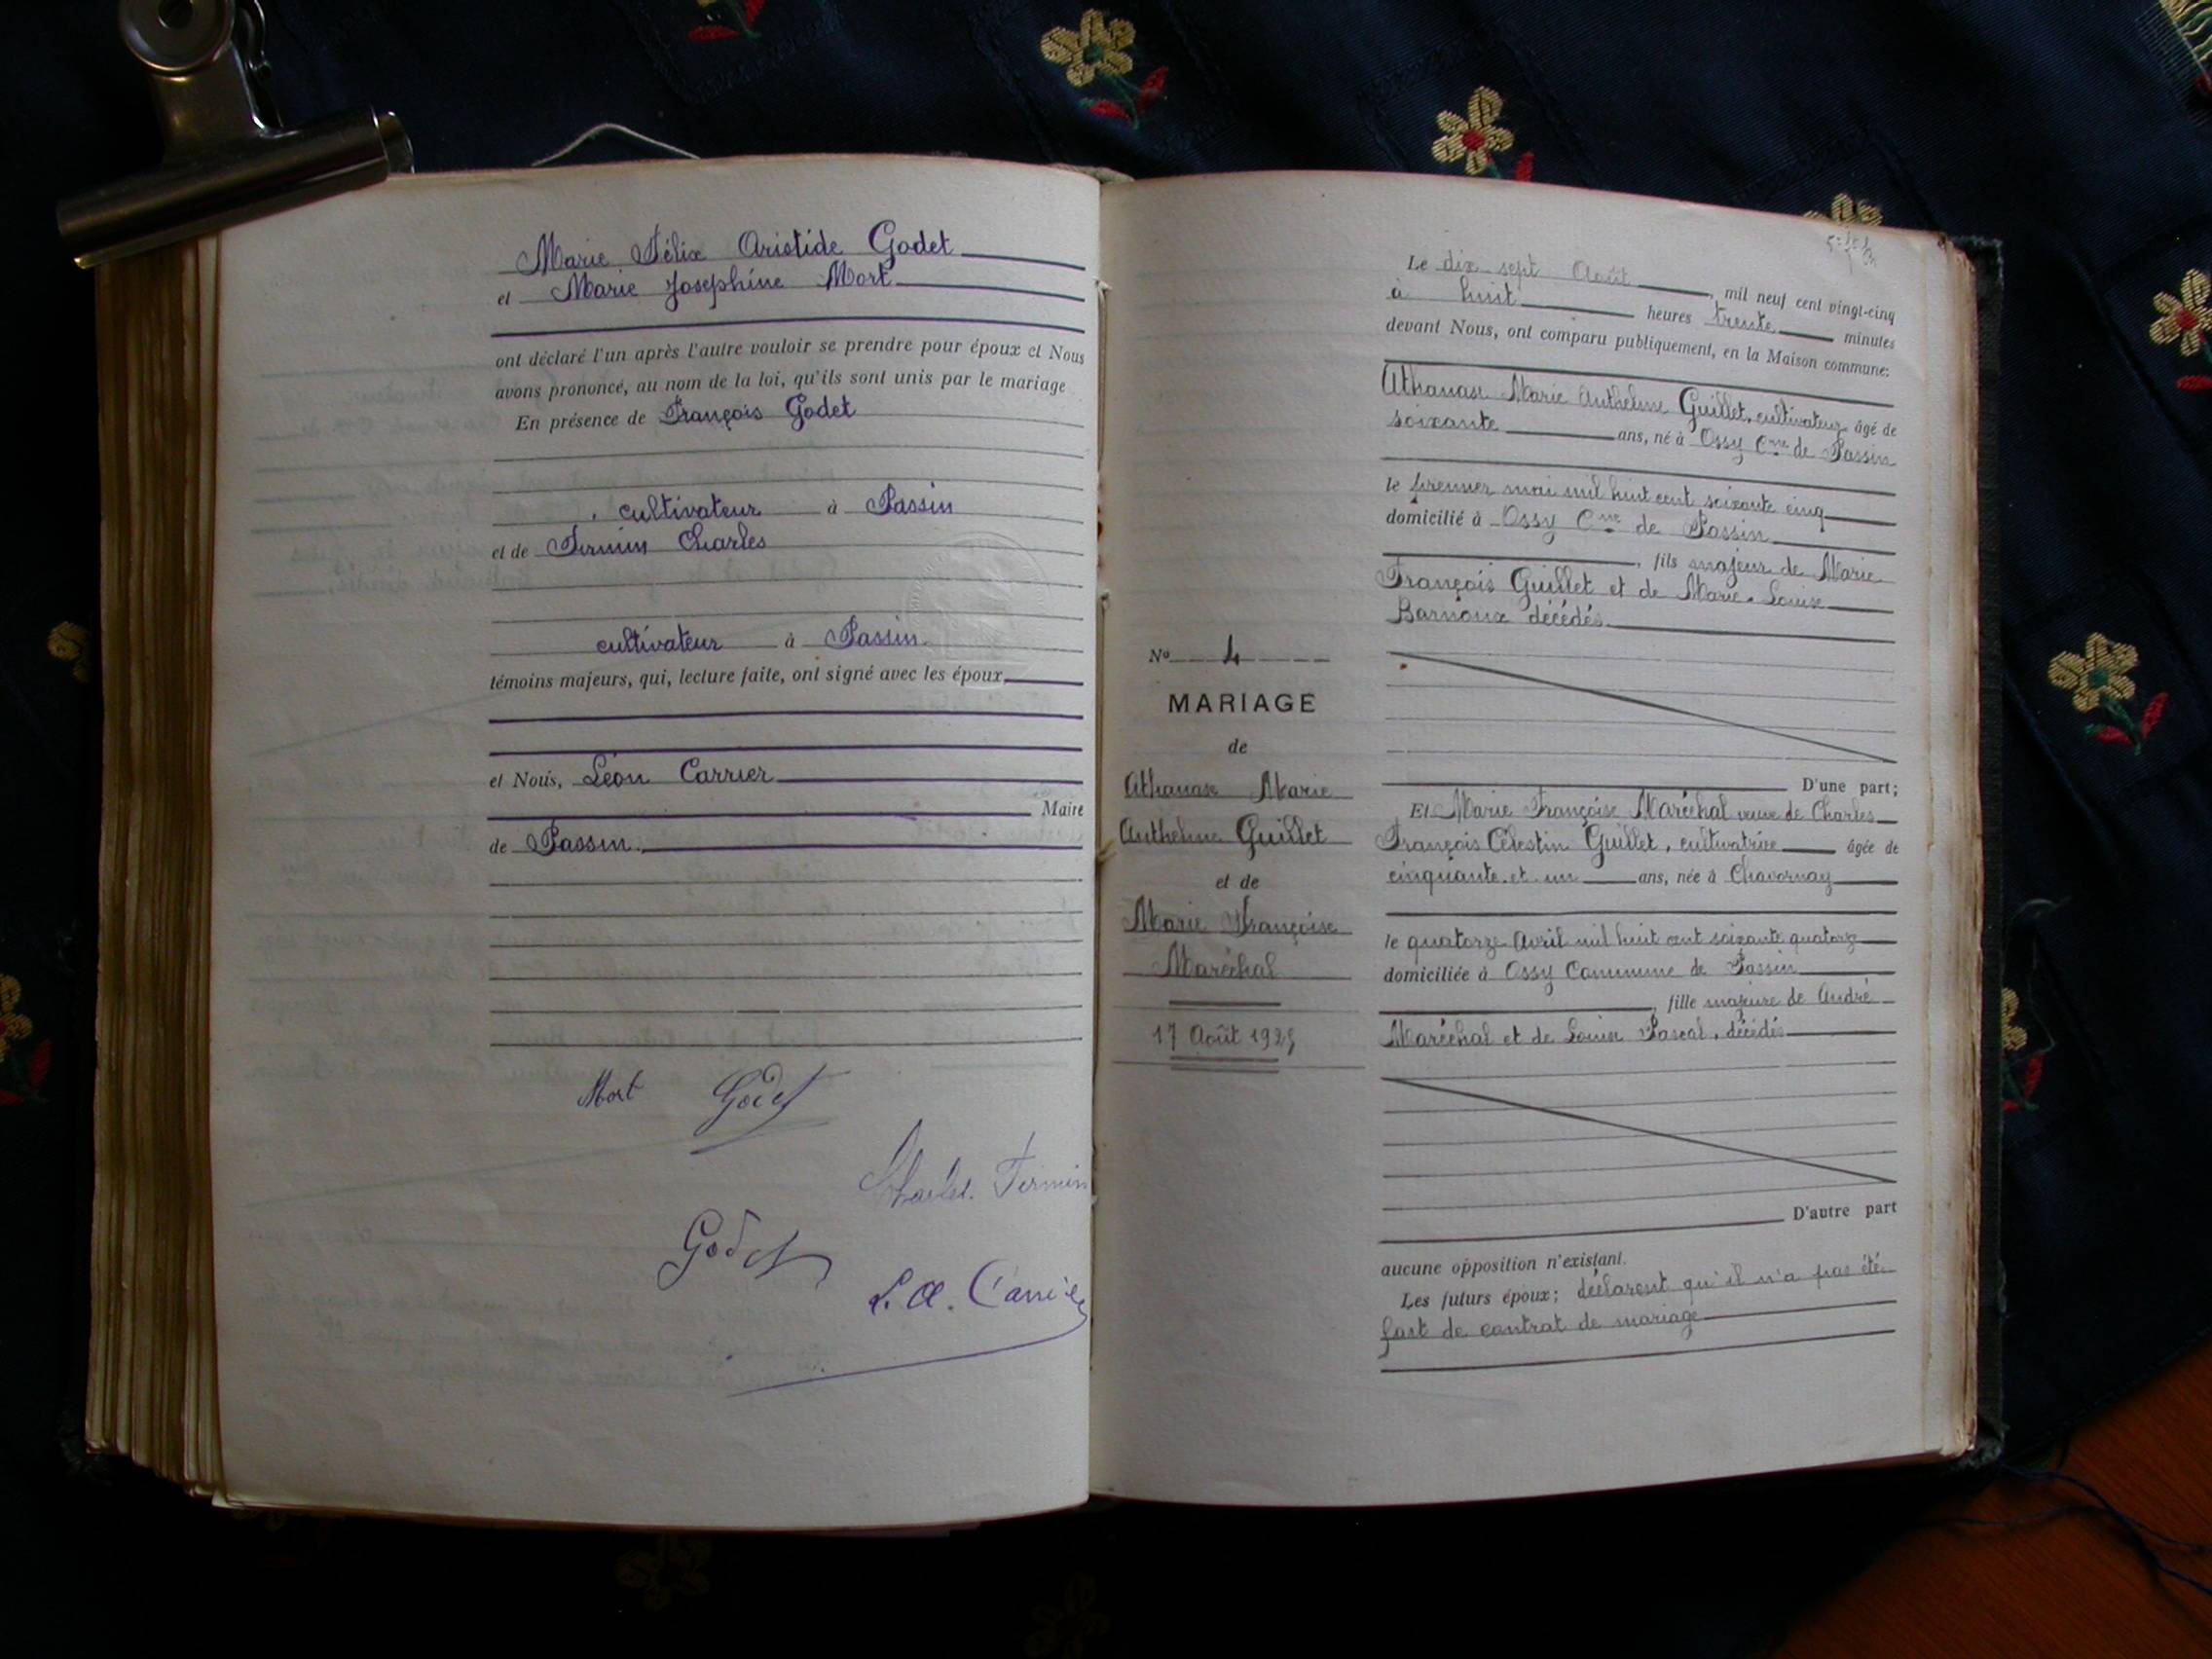 Marie Félix Aristide Godet
et Marie Joséphine Mort
ont déclaré l'un après l'autre vouloir se prendre pour époux et Nous
avons prononcé, au nom de la loi, qu'ils sont unis par le mariage
En présence de François Godet
, cultivateur à Passin
et de Firmin Charles
cultivateur à Passin.
témoins majeurs, qui, lecture faite, ont signé avec les époux,
et Nous, Léon Carrier
Maire
de Passin.
Mort Godet
Charles Firmin
Godet
L. A. Carrier
Le dix sept Août, mil neuf cent vingt-cinq
à huit heures trente minutes
devant Nous, ont comparu publiquement, en la Maison commune:
Athanase Marie Anthelme Guillet, cultivateur âgé de
soixante ans, né à Ossy Cne de Passin
le premier mai mil huit cent soixante cinq
domicilié à Ossy Cne de Passin
, fils majeur de Marie
François Guillet et de Marie-Louise
Barnoux décédés.
D'une part;
Et Marie Françoise Maréchal veuve de Charles
François Célestin Guillet, cultivatrice âgée de
cinquante et un ans, née à Chavornay
le quatorze Avril mil huit cent soixante quatorze
domiciliée à Ossy Commune de Passin
, fille majeure de André
Maréchal et de Louise Pascal, décédés
D'autre part
aucune opposition n'existant.
Les futurs époux; déclarent qu'il n'a pas été
fait de contrat de mariage
No 4
MARIAGE
de
Athanase Marie
Anthelme Guillet
et de
Marie Françoise
Maréchal
17 Août 1925